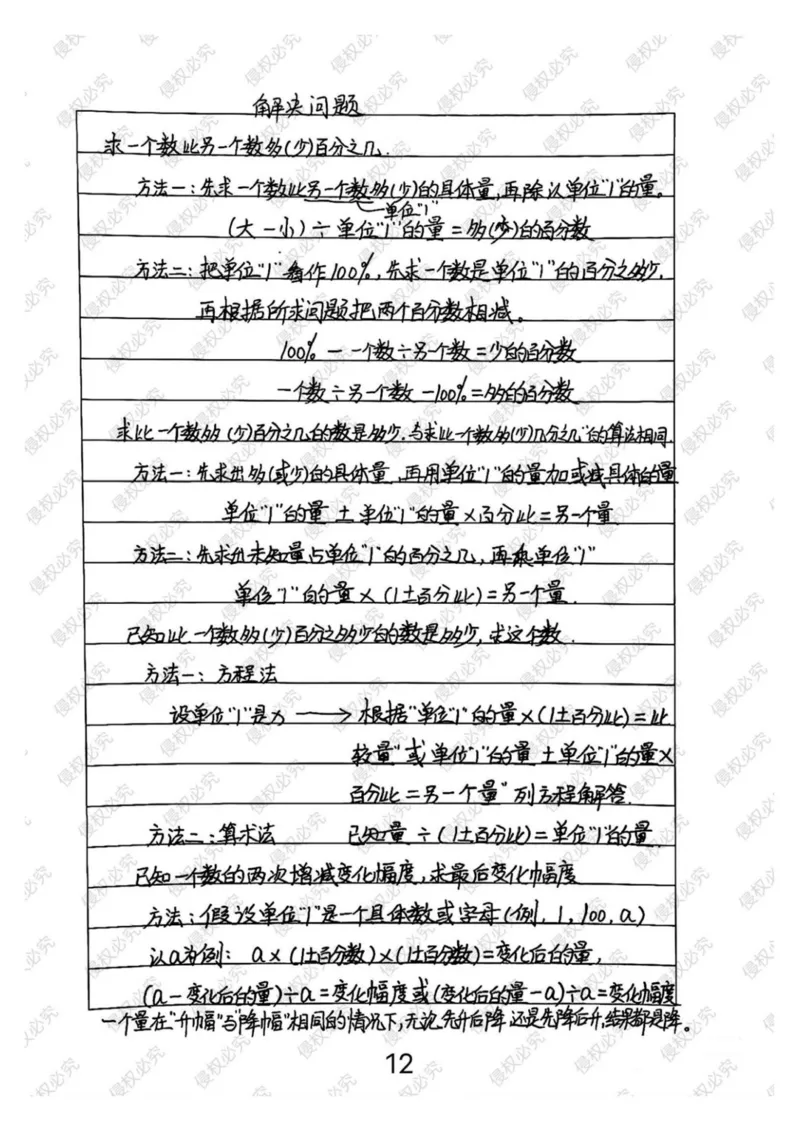 解决问题
求一个数比另一个数多(少)百分之几.
方法一:先求一个数比另一个数多(少)的具体量,再除以单位"1"的量。
单位"1"
(大-小)÷单位"1"的量=多(少)的百分数
方法二:把单位"1"看作100%,先求一个数是单位"1"的百分之多少,
再根据所求问题把两个百分数相减。
100%-一个数÷另一个数=少的百分数
一个数÷另一个数-100%=多的百分数
求比一个数多(少)百分之几的数是多少.与求比一个数多(少)几分之几"的算法相同.
方法一:先求出多(或少)的具体量,再用单位"1"的量加或减具体的量
单位"1"的量±单位"1"的量×百分比=另一个量
方法二:先求出未知量占单位"1"的百分之几,再乘单位"1"
单位"1"的量×(1±百分比)=另一个量.
已知比一个数多(少)百分之多少的数是多少,求这个数.
方法一:方程法
设单位"1"是x → 根据"单位"1"的量×(1±百分比)=比
较量"或单位"1"的量±单位"1"的量×
百分比=另一个量"列方程解答.
方法二:算术法 已知量÷(1±百分比)=单位"1"的量
已知一个数的两次增减变化幅度,求最后变化幅度
方法:假设单位"1"是一个具体数或字母(例,1,100,a)
以a为例: a×(1±百分数)×(1±百分数)=变化后的量,
(a-变化后的量)÷a=变化幅度或(变化后的量-a)÷a=变化幅度
一个量在"升幅"与"降幅"相同的情况下,无论先升后降还是先降后升,结果都是降。
12
侵权必究